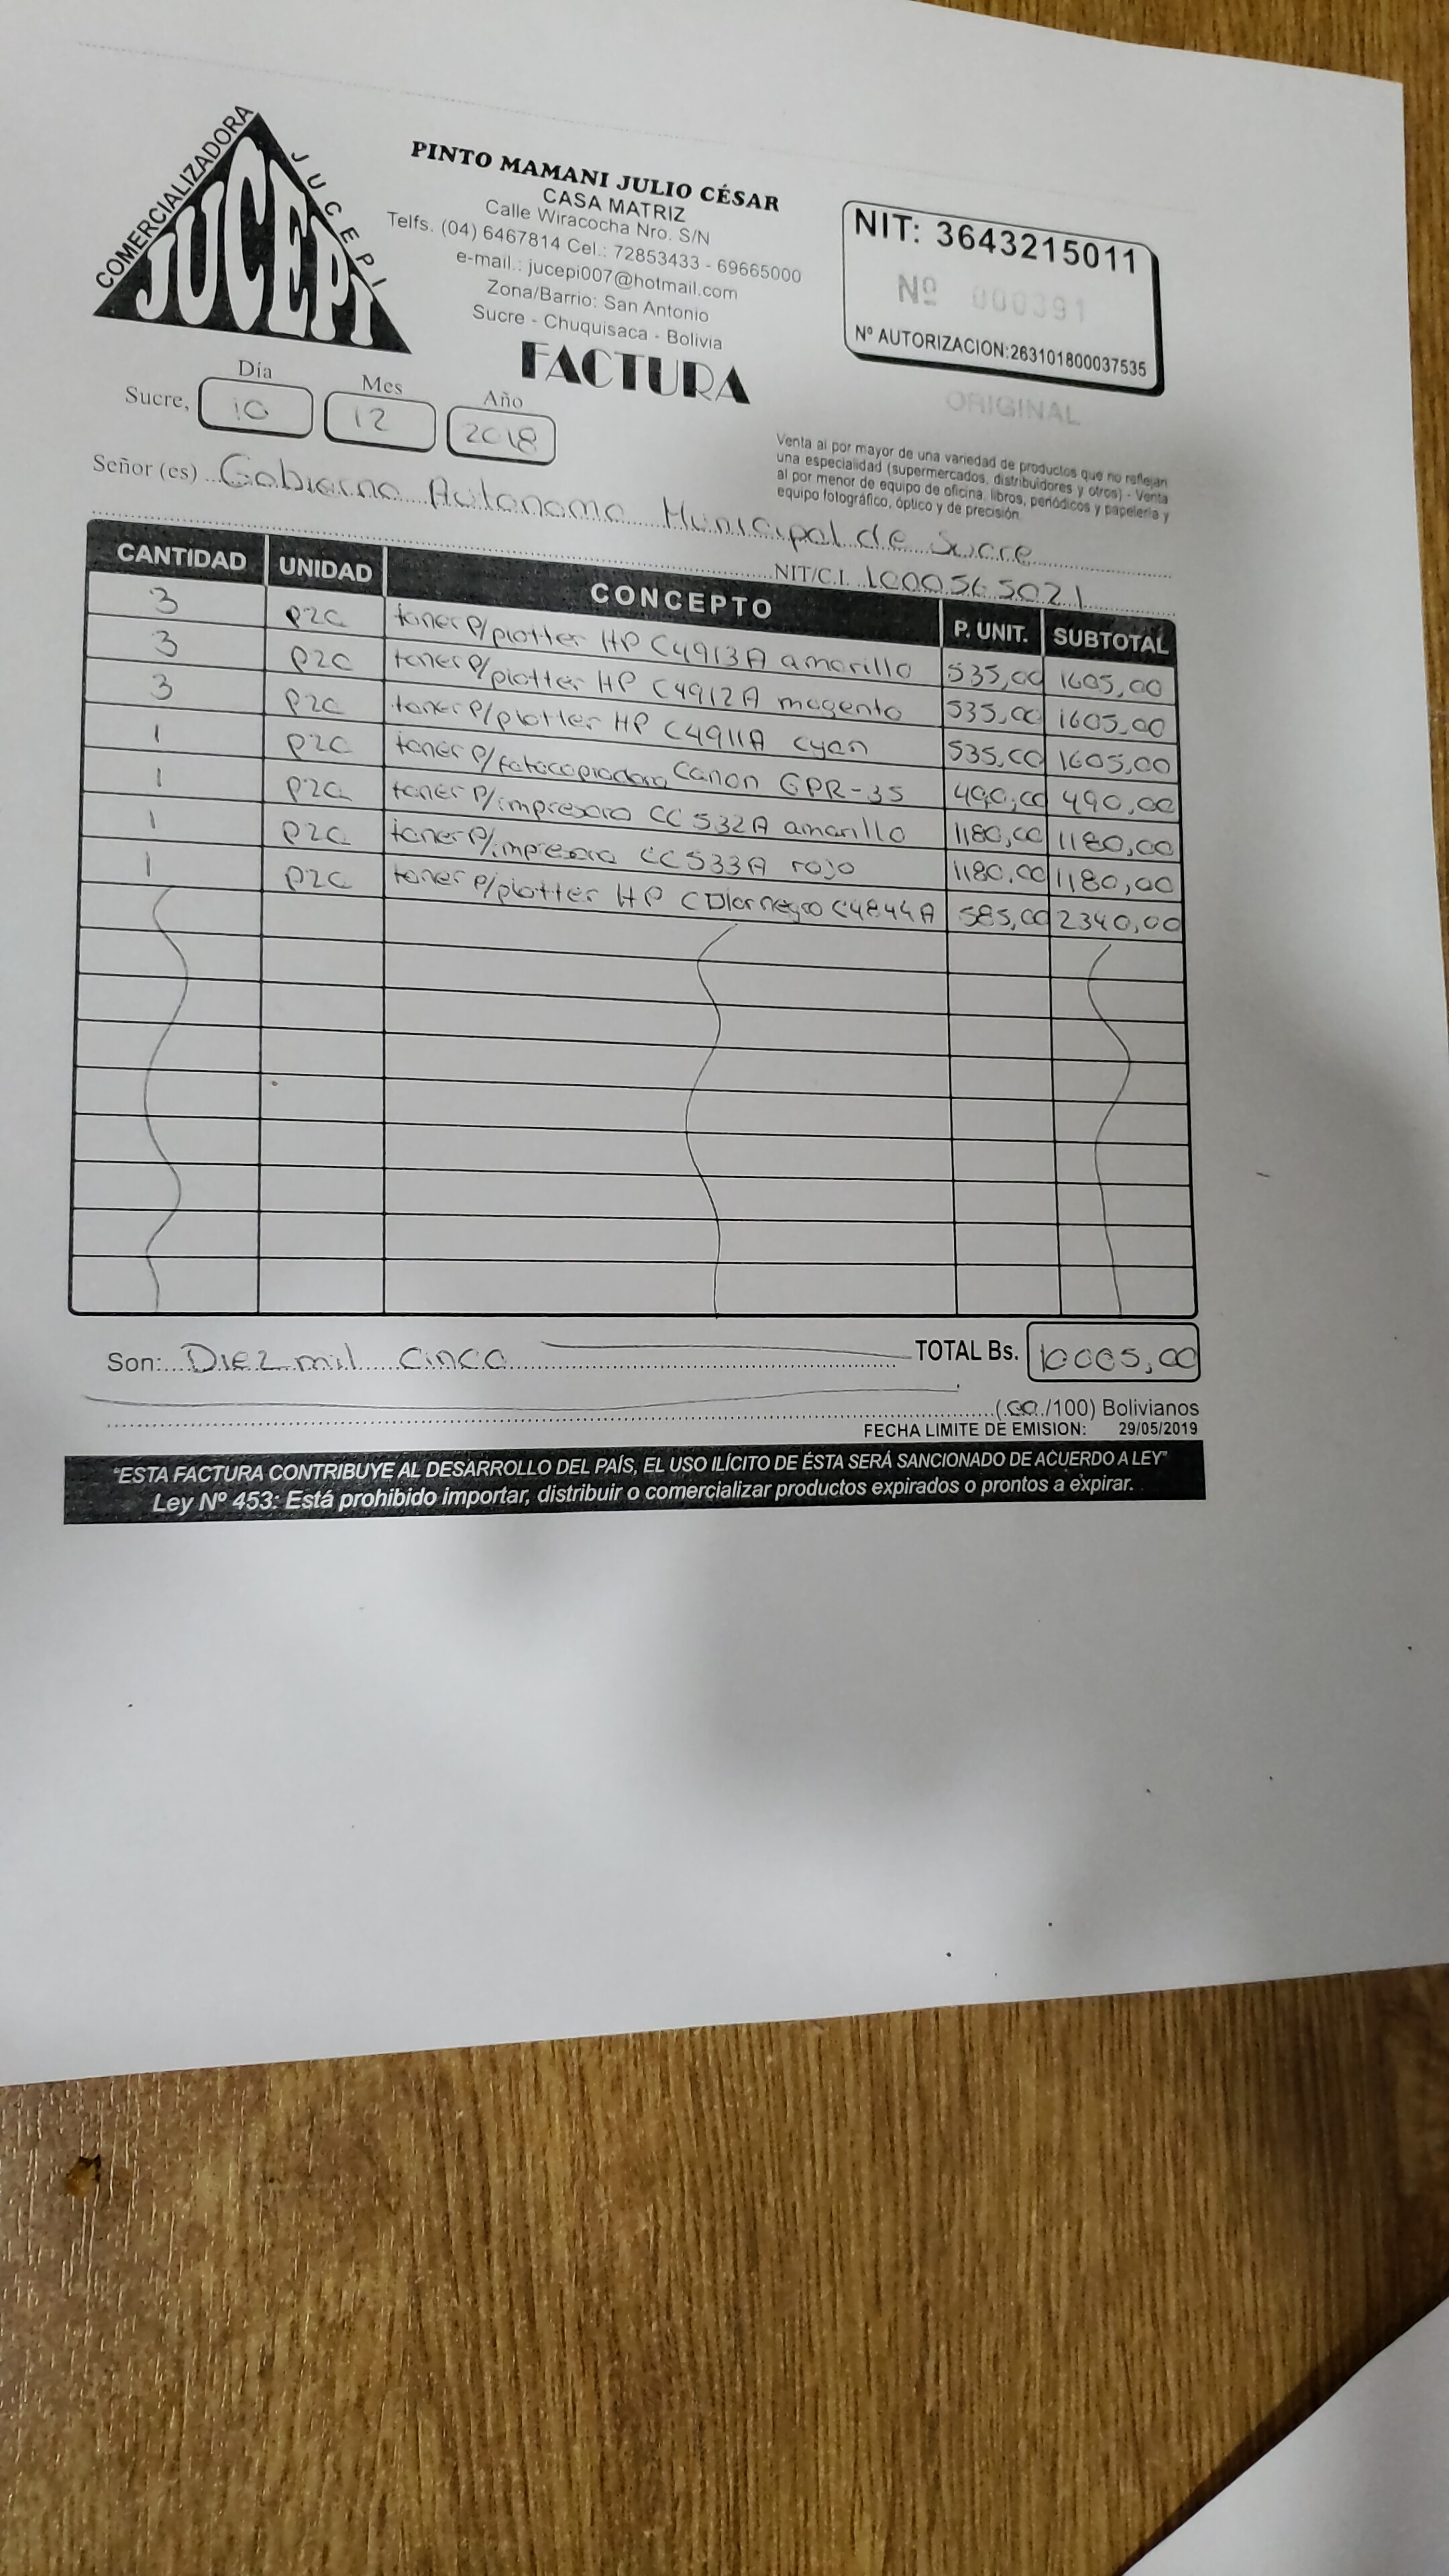 COMERCIALIZADORA
JUCEPI
JUCEPI
PINTO MAMANI JULIO CÉSAR
CASA MATRIZ
Calle Wiracocha Nro. S/N
Telfs. (04) 6467814 Cel.: 72853433 - 69665000
e-mail.: jucepi007@hotmail.com
Zona/Barrio: San Antonio
Sucre - Chuquisaca - Bolivia
FACTURA
NIT: 3643215011
Nº 000391
Nº AUTORIZACION:263101800037535
ORIGINAL
Venta al por mayor de una variedad de productos que no reflejan
una especialidad (supermercados, distribuidores y otros) - Venta
al por menor de equipo de oficina, libros, periódicos y papelería y
equipo fotográfico, óptico y de precisión.
Día Mes Año
Sucre, 10 12 2018
Señor (es) Gobierno Autonomo Municipal de Sucre
NIT/C.I. 1000565021
CANTIDAD UNIDAD CONCEPTO P. UNIT. SUBTOTAL
3 pza toner p/plotter HP C4913A amarillo 535,00 1605,00
3 pza toner p/plotter HP C4912A magento 535,00 1605,00
3 pza toner p/plotter HP C4911A cyan 535,00 1605,00
1 pza toner p/fotocopiadora Canon GPR-35 490,00 490,00
1 pza toner p/impresora CC532A amarillo 1180,00 1180,00
1 pza toner p/impresora CC533A rojo 1180,00 1180,00
1 pza toner p/plotter HP Color negro C4844A 585,00 2340,00
Son: Diez mil cinco TOTAL Bs. 10005,00
(00/100) Bolivianos
FECHA LIMITE DE EMISION: 29/05/2019
"ESTA FACTURA CONTRIBUYE AL DESARROLLO DEL PAÍS, EL USO ILÍCITO DE ÉSTA SERÁ SANCIONADO DE ACUERDO A LEY"
Ley Nº 453: Está prohibido importar, distribuir o comercializar productos expirados o prontos a expirar.